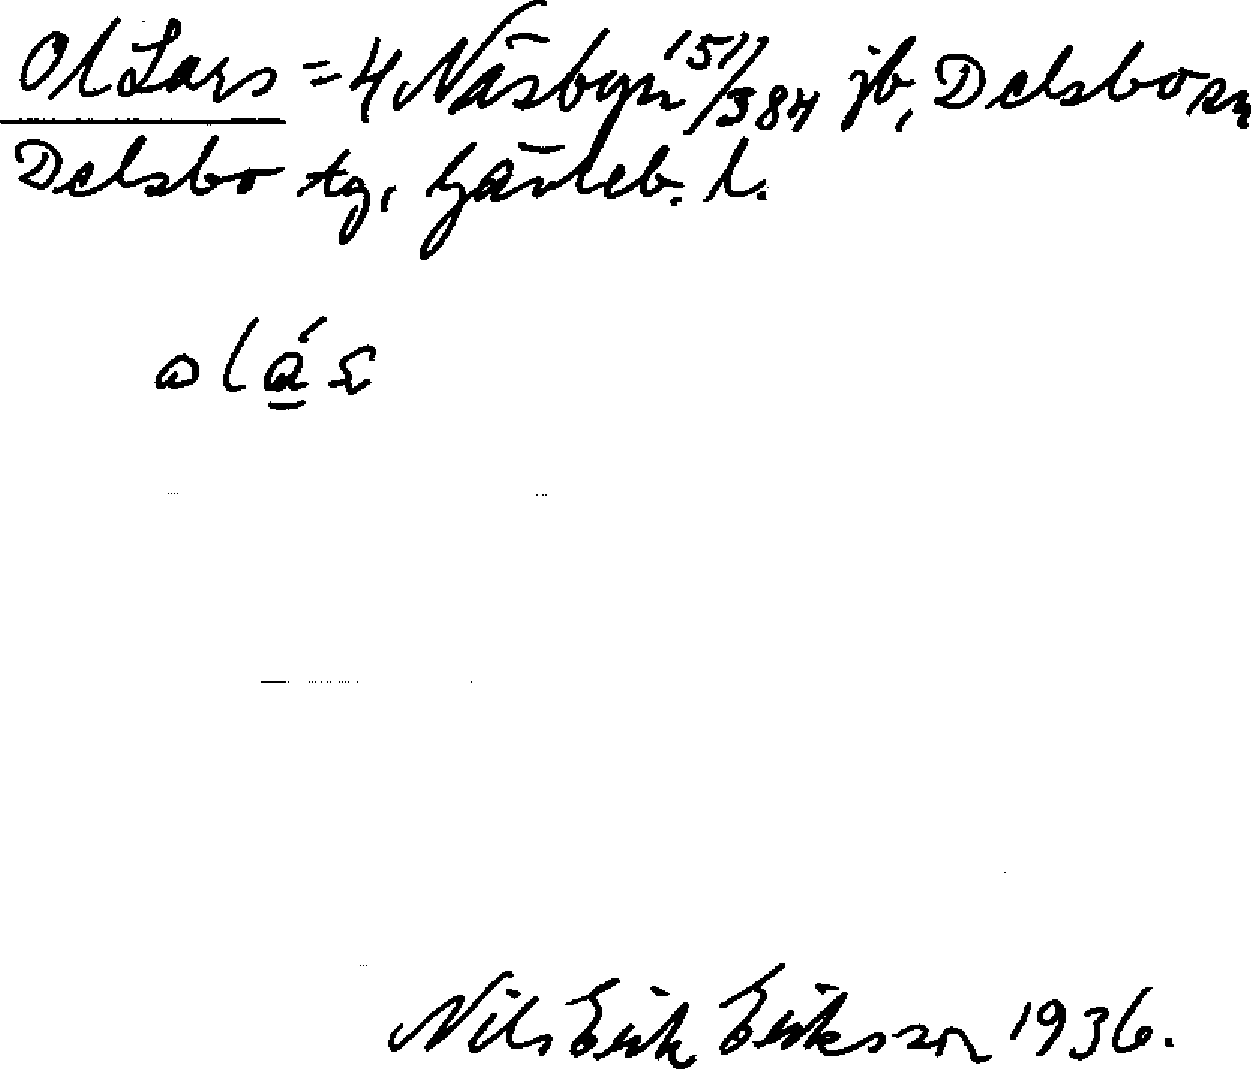 Ol Lars = 4 Näsbyn 1511/384 jb, Delsbo sn
Delsbo tg, Gävleb. l.
Nils Erik Eriksson 1936.